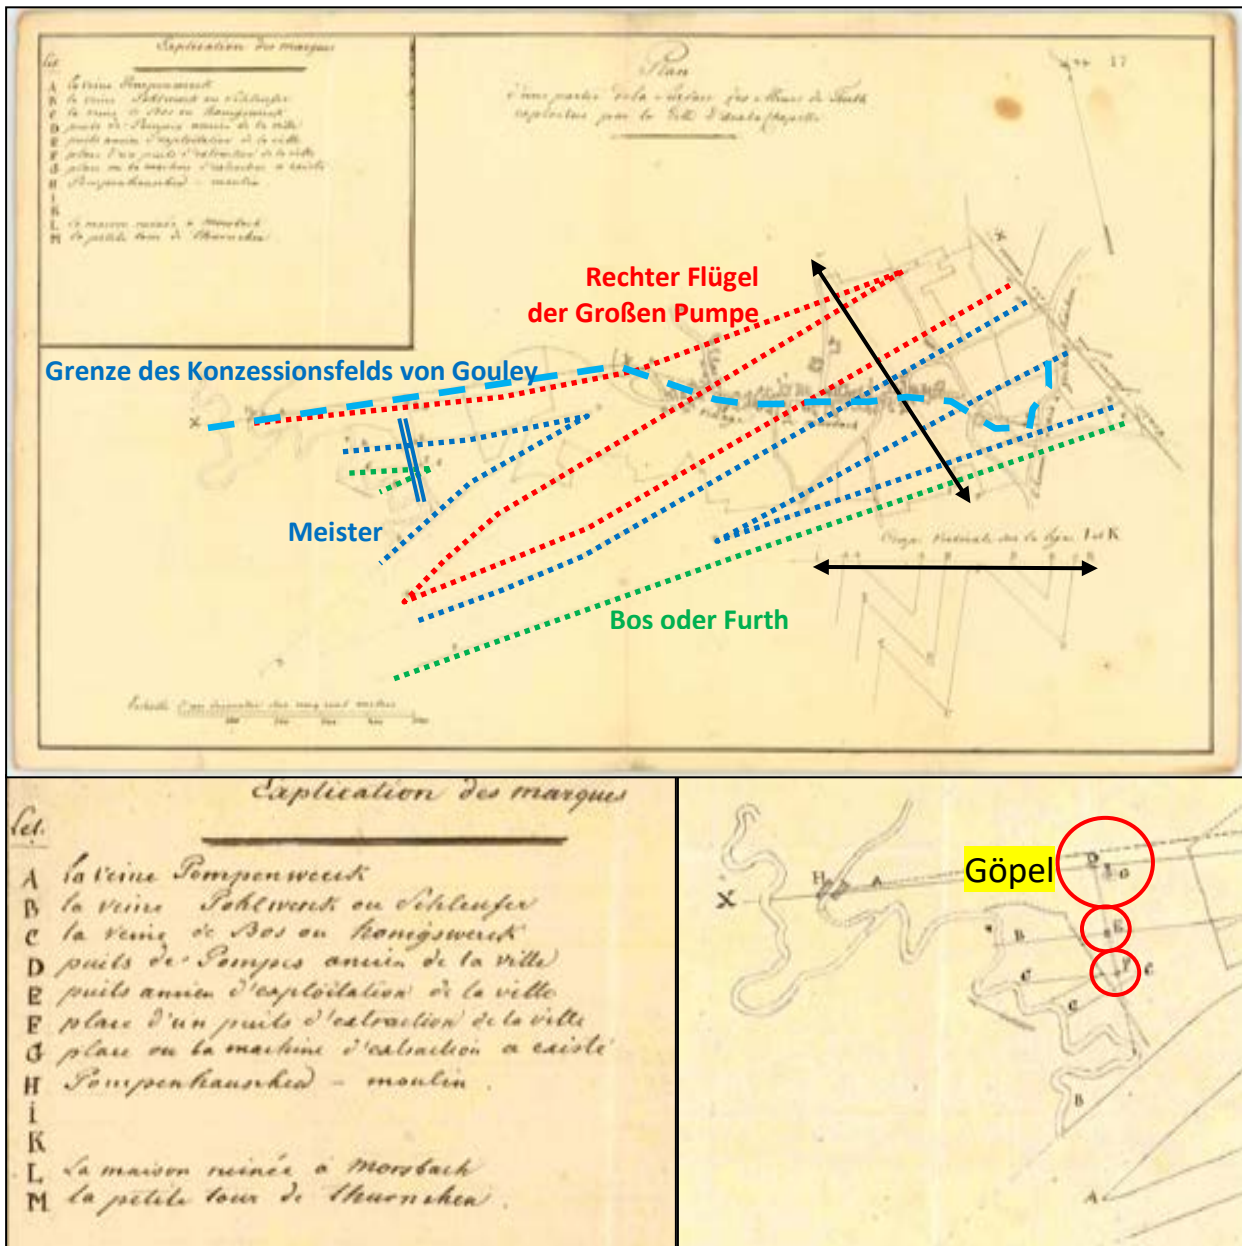 Explication des marques
Let.
A la veine Pompenwerck
B la veine Pohlwerck ou Schleufer
C la veine de Bos ou Konigswerck
D puits de Pompes ancien de la ville
E puits ancien d'exploitation de la ville
F place d'un puits d'extraction de la ville
G place ou la machine d'extraction a existé
H Pompenhauschen - moulin
I
K
L la maison ruinée a Morsbach
M la petite tour de Thurnchen.
Plan
d'une partie de la surface des Mines de Furth
exploitées par la Ville d'Aix la Chapelle
17
X
Rechter Flügel
der Großen Pumpe
Grenze des Konzessionsfelds von Gouley
X
Meister
Coupe verticale sur la ligne I et K
Bos oder Furth
Explication des marques
Let.
A la veine Pompenwerck
B la veine Pohlwerck ou Schleufer
C la veine de Bos ou Konigswerck
D puits de Pompes ancien de la ville
E puits ancien d'exploitation de la ville
F place d'un puits d'extraction de la ville
G place ou la machine d'extraction a existé
H Pompenhauschen - moulin.
I
K
L La maison ruinée à Morsbach
M la petite tour de Thurnchen.
Göpel
D
G
H
A
X
E
B
F
C
C
C
B
A